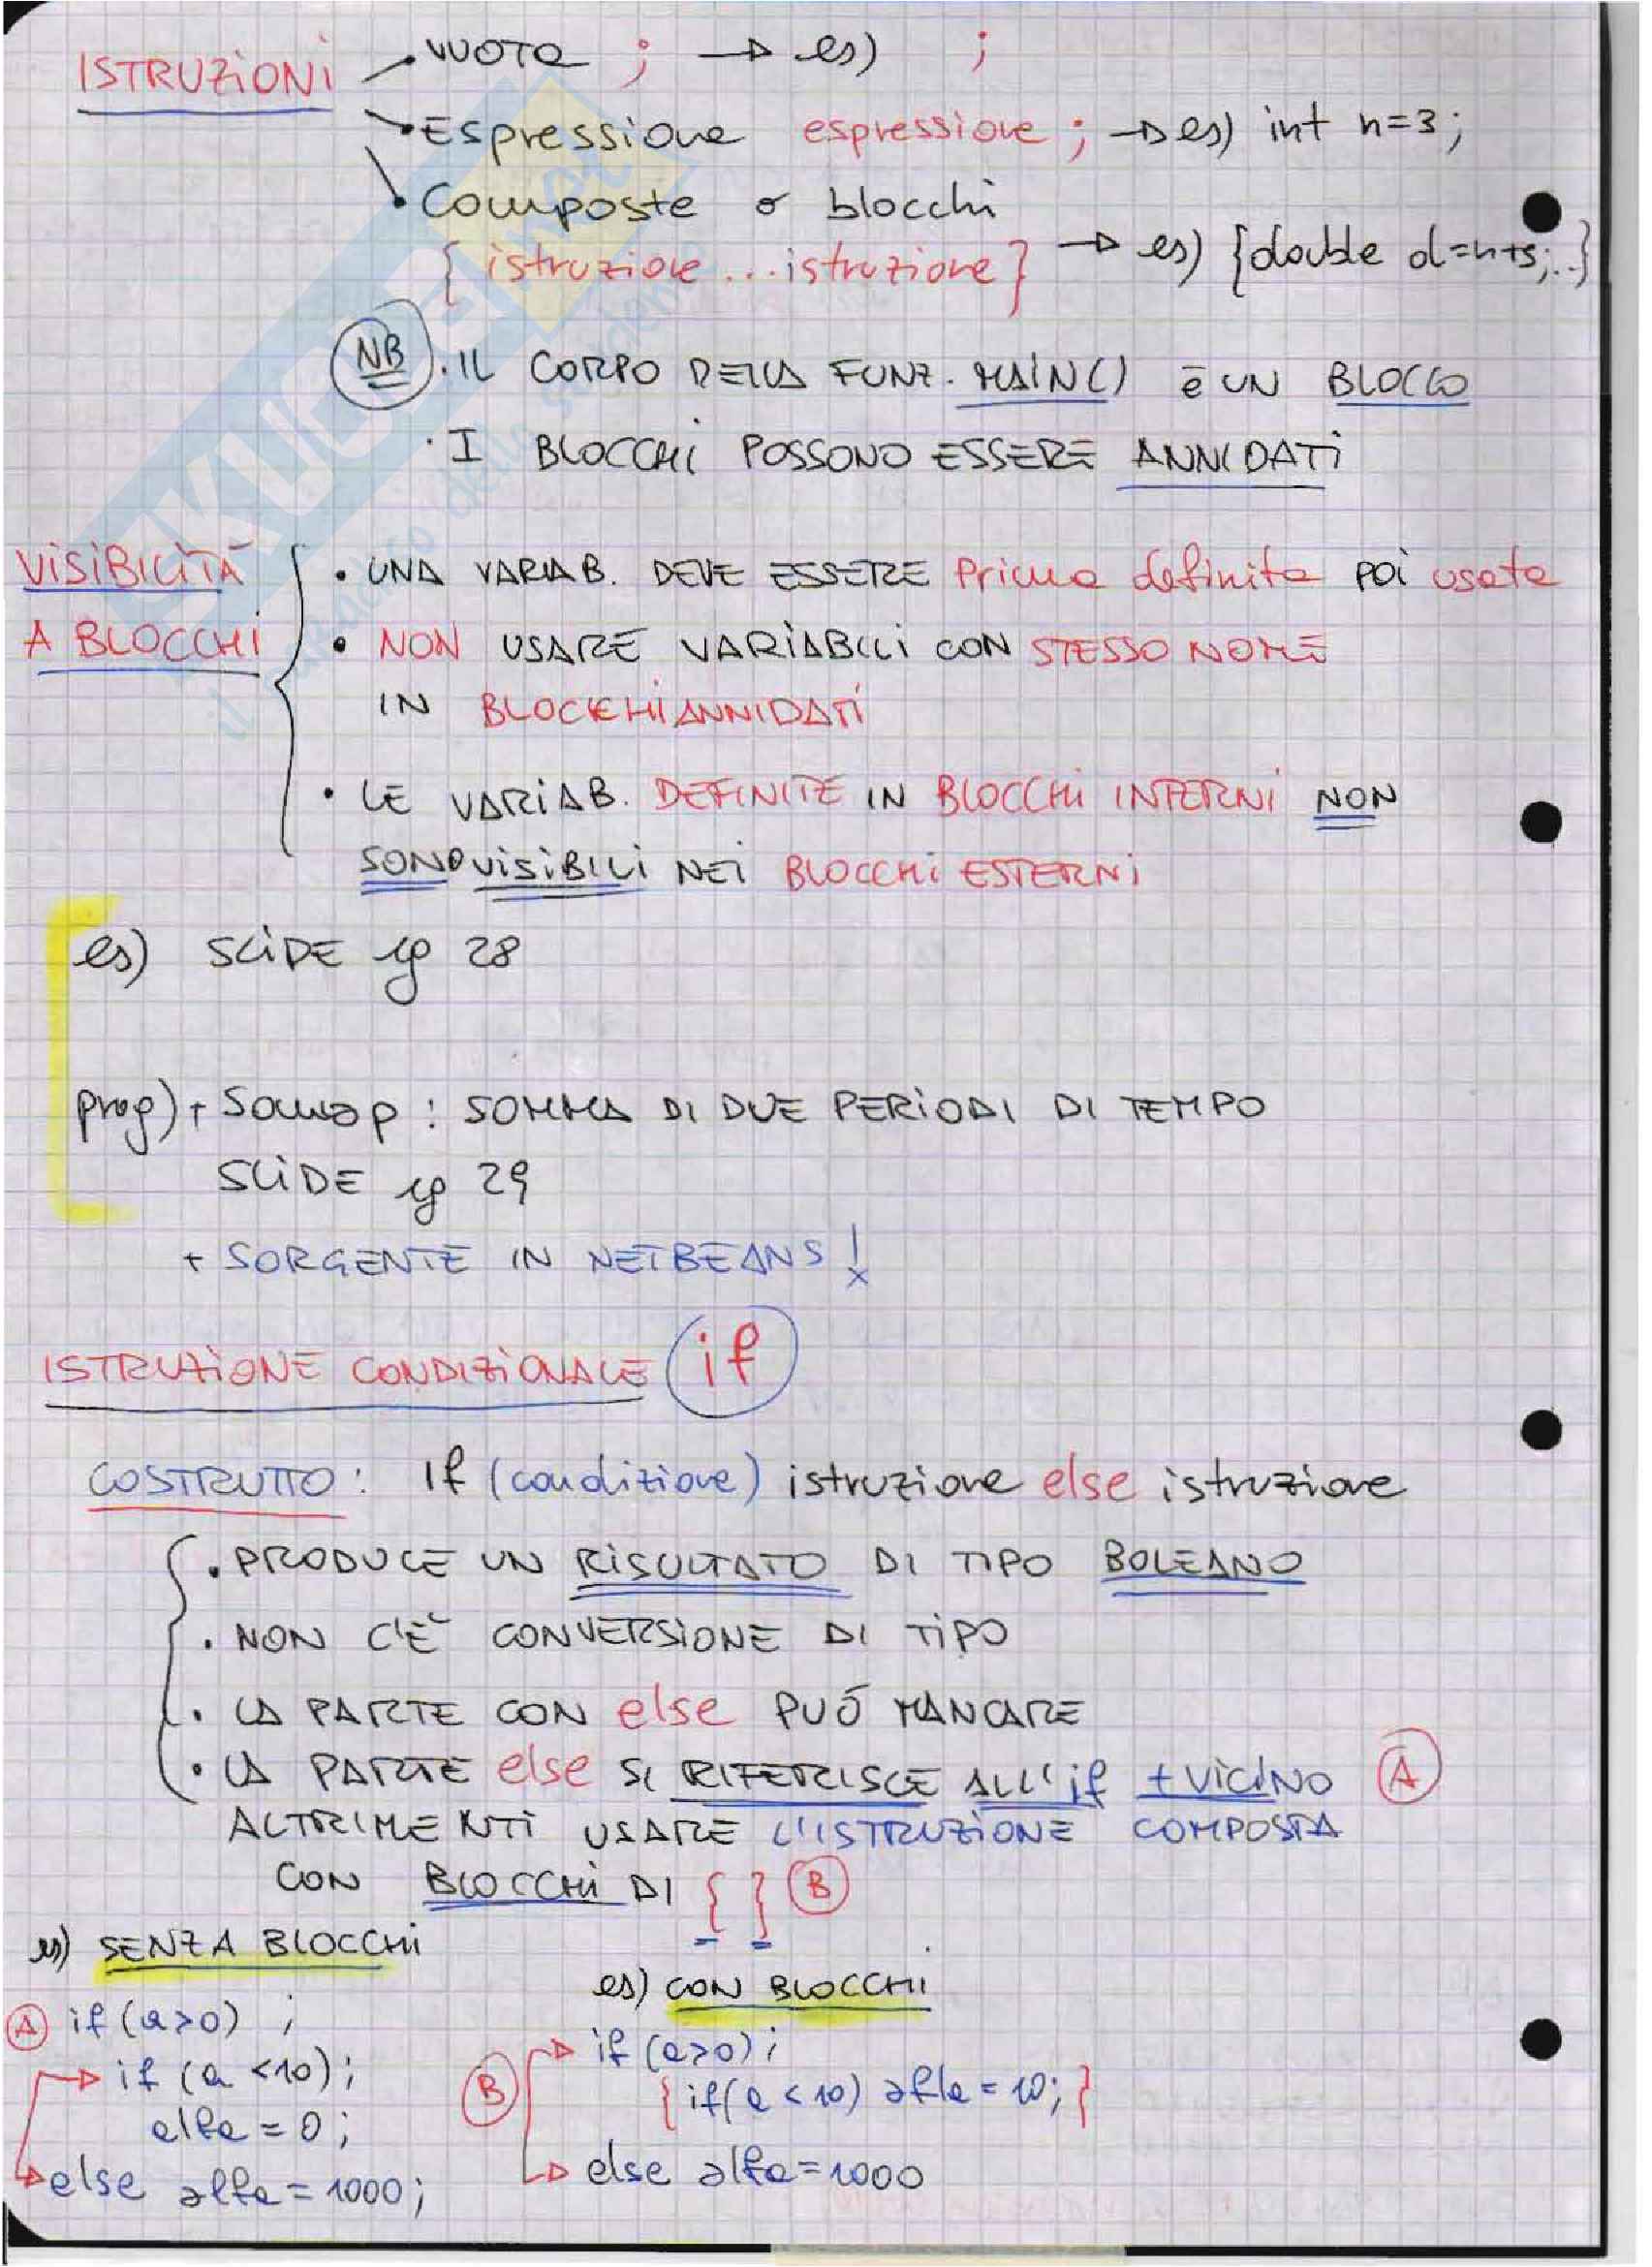 ISTRUZIONI
• VUOTA ; → es) ;
• Espressione espressione ; → es) int n=3;
• Composte o blocchi
{ istruzione ... istruzione } → es) {double d=n+5;..}
NB • IL CORPO DELLA FUNZ. MAIN() è UN BLOCCO
• I BLOCCHI POSSONO ESSERE ANNIDATI
VISIBILITÀ A BLOCCHI
• UNA VARIAB. DEVE ESSERE Prima definita POI usata
• NON USARE VARIABILI CON STESSO NOME
IN BLOCCHI ANNIDATI
• LE VARIAB. DEFINITE IN BLOCCHI INTERNI NON
SONO VISIBILI NEI BLOCCHI ESTERNI
es) SLIDE pg 28
prog) + Somma p : SOMMA DI DUE PERIODI DI TEMPO
SLIDE pg 29
+ SORGENTE IN NETBEANS !
ISTRUZIONE CONDIZIONALE if
COSTRUTTO: If (condizione) istruzione else istruzione
• PRODUCE UN RISULTATO DI TIPO BOLEANO
• NON C'È CONVERSIONE DI TIPO
• LA PARTE CON else PUÓ MANCARE
• LA PARTE else SI RIFERISCE ALL'if + VICINO A
ALTRIMENTI USARE L'ISTRUZIONE COMPOSTA
CON BLOCCHI DI { } B
es) SENZA BLOCCHI
A if (a>0) ;
if (a <10);
alfa = 0;
else alfa = 1000;
es) CON BLOCCHI
B if (a>0);
{ if(a < 10) alfa = 10; }
else alfa=1000